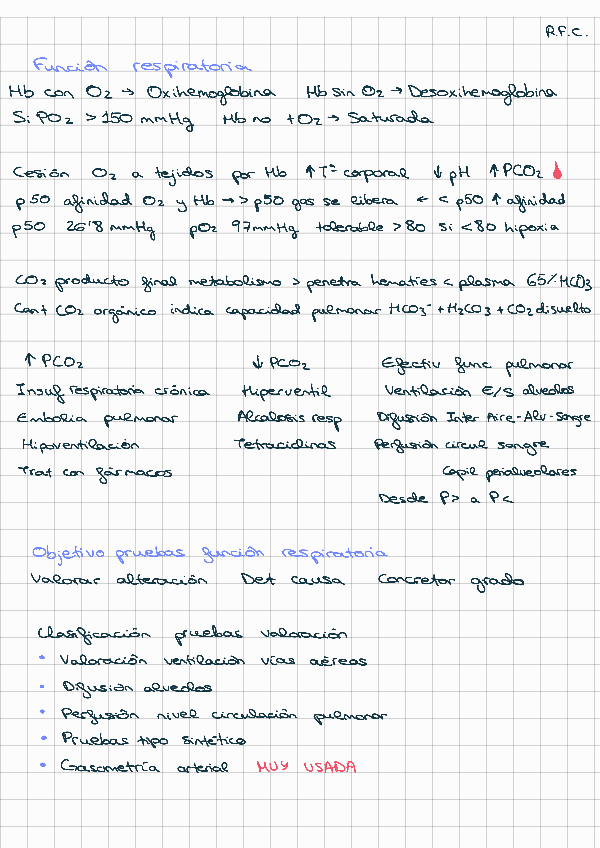 R.F.C.
Función respiratoria
Hb con O₂ → Oxihemoglobina Hb sin O₂ → Desoxihemoglobina
Si PO₂ > 150 mmHg Hb no +O₂ → Saturada
Cesión O₂ a tejidos por Hb ↑Tª corporal ↓ pH ↑PCO₂
p50 afinidad O₂ y Hb → > p50 gas se libera ← < p50 ↑ afinidad
p50 26'8 mmHg pO₂ 97mmHg tolerable >80 si <80 hipoxia
CO₂ producto final metabolismo > penetra hematíes < plasma 65% HCO₃
Cant CO₂ orgánico indica capacidad pulmonar HCO₃⁻ + H₂CO₃ + CO₂ disuelto
↑ PCO₂ ↓ PCO₂ Efectiv func pulmonar
Insuf respiratoria crónica Hiperventil Ventilación E/S alveolos
Embolia pulmonar Alcalosis resp Difusión Inter Aire-Alv-Sangre
Hipoventilación Tetraciclinas Perfusión circul sangre
Trat con fármacos Capil perialveolares
Desde P> a P<
Objetivo pruebas función respiratoria
Valorar alteración Det causa Concretar grado
Clasificación pruebas valoración
• Valoración ventilación vías aéreas
• Difusión alveolos
• Perfusión nivel circulación pulmonar
• Pruebas tipo sintético
• Gasometría arterial MUY USADA